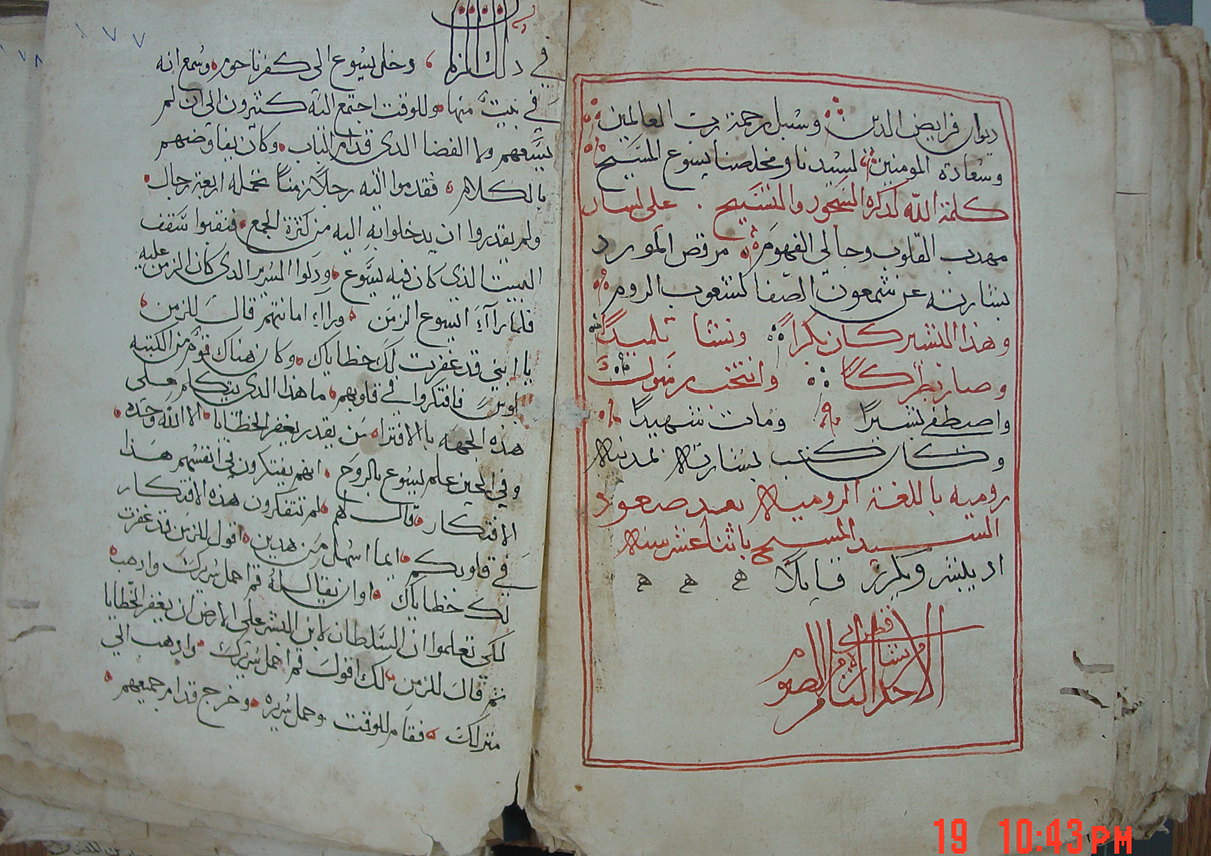 ديوان فرايض الدين وسبل رحمة رب العالمين
وسعادة المومنين لسيدنا ومخلصنا يسوع المسيح
كلمة الله لذكره السجود والتسبيح . على لسان
مهدب القلوب وجالي الفهوم مرقص المورد
بشارته عن شمعون الصفا لشعوب الروم
وهذا المبشر كان بكراً ونشا تلميداً
وصار بطركاً وانتخب رسولاً
واصطفي بشيراً ومات شهيداً
وكان كتب بشارته بمدينة
رومية باللغة الرومية بعد صعود
السيد المسيح باثنا عشر سنة
اد يبشر ويكرز قايلاً ه ه ه
الاحد
في دلك الزمان وخل يسوع الى كفرناحوم وسمع انه
في بيت منها وللوقت اجتمع اليه كثيرون الى ان لم
يسعهم ولا الفضا الدى قدام الباب وكان يفاوضهم
بالكلام فقدموا اليه رجلاً زمناً تحمله اربعة رجال
ولم يقدروا ان يدخلوا به اليه من كثرة الجمع فنقبوا سقف
البيت الذى كان فيه يسوع ودلوا السرير الدى كان الزمن عليه
فلما راآ ايسوع الزمن وراا امانتهم قال للزمن
يا ابني قد غفرت لك خطاياك وكان هناك قوم من الكتبه
جلوس فافتكروا في قلوبهم ما هذا الدى يتكلم على
هذه الجهه بالافترا من يقدر يغفر الخطايا الا الله وحده
وفي الحين علم يسوع بالروح انهم يفتكرون في انفسهم هذا
الافتكار قال لهم لم تتفكرون هذه الافتكار
في قلوبكم ايما اسهل من هدين اقول للزمن قد غفرت
لك خطاياك او ان يقال له قم احمل سريرك وادهب
لكي تعلموا ان السلطان لابن البشر على الارض ان يغفر الخطايا
ثم قال للزمن لك اقول قم احمل سريرك وادهب الى
منزلك فقام للوقت وحمل سريره وخرج قدام جميعهم
١٧٧
١٧٨
19 10:43 PM